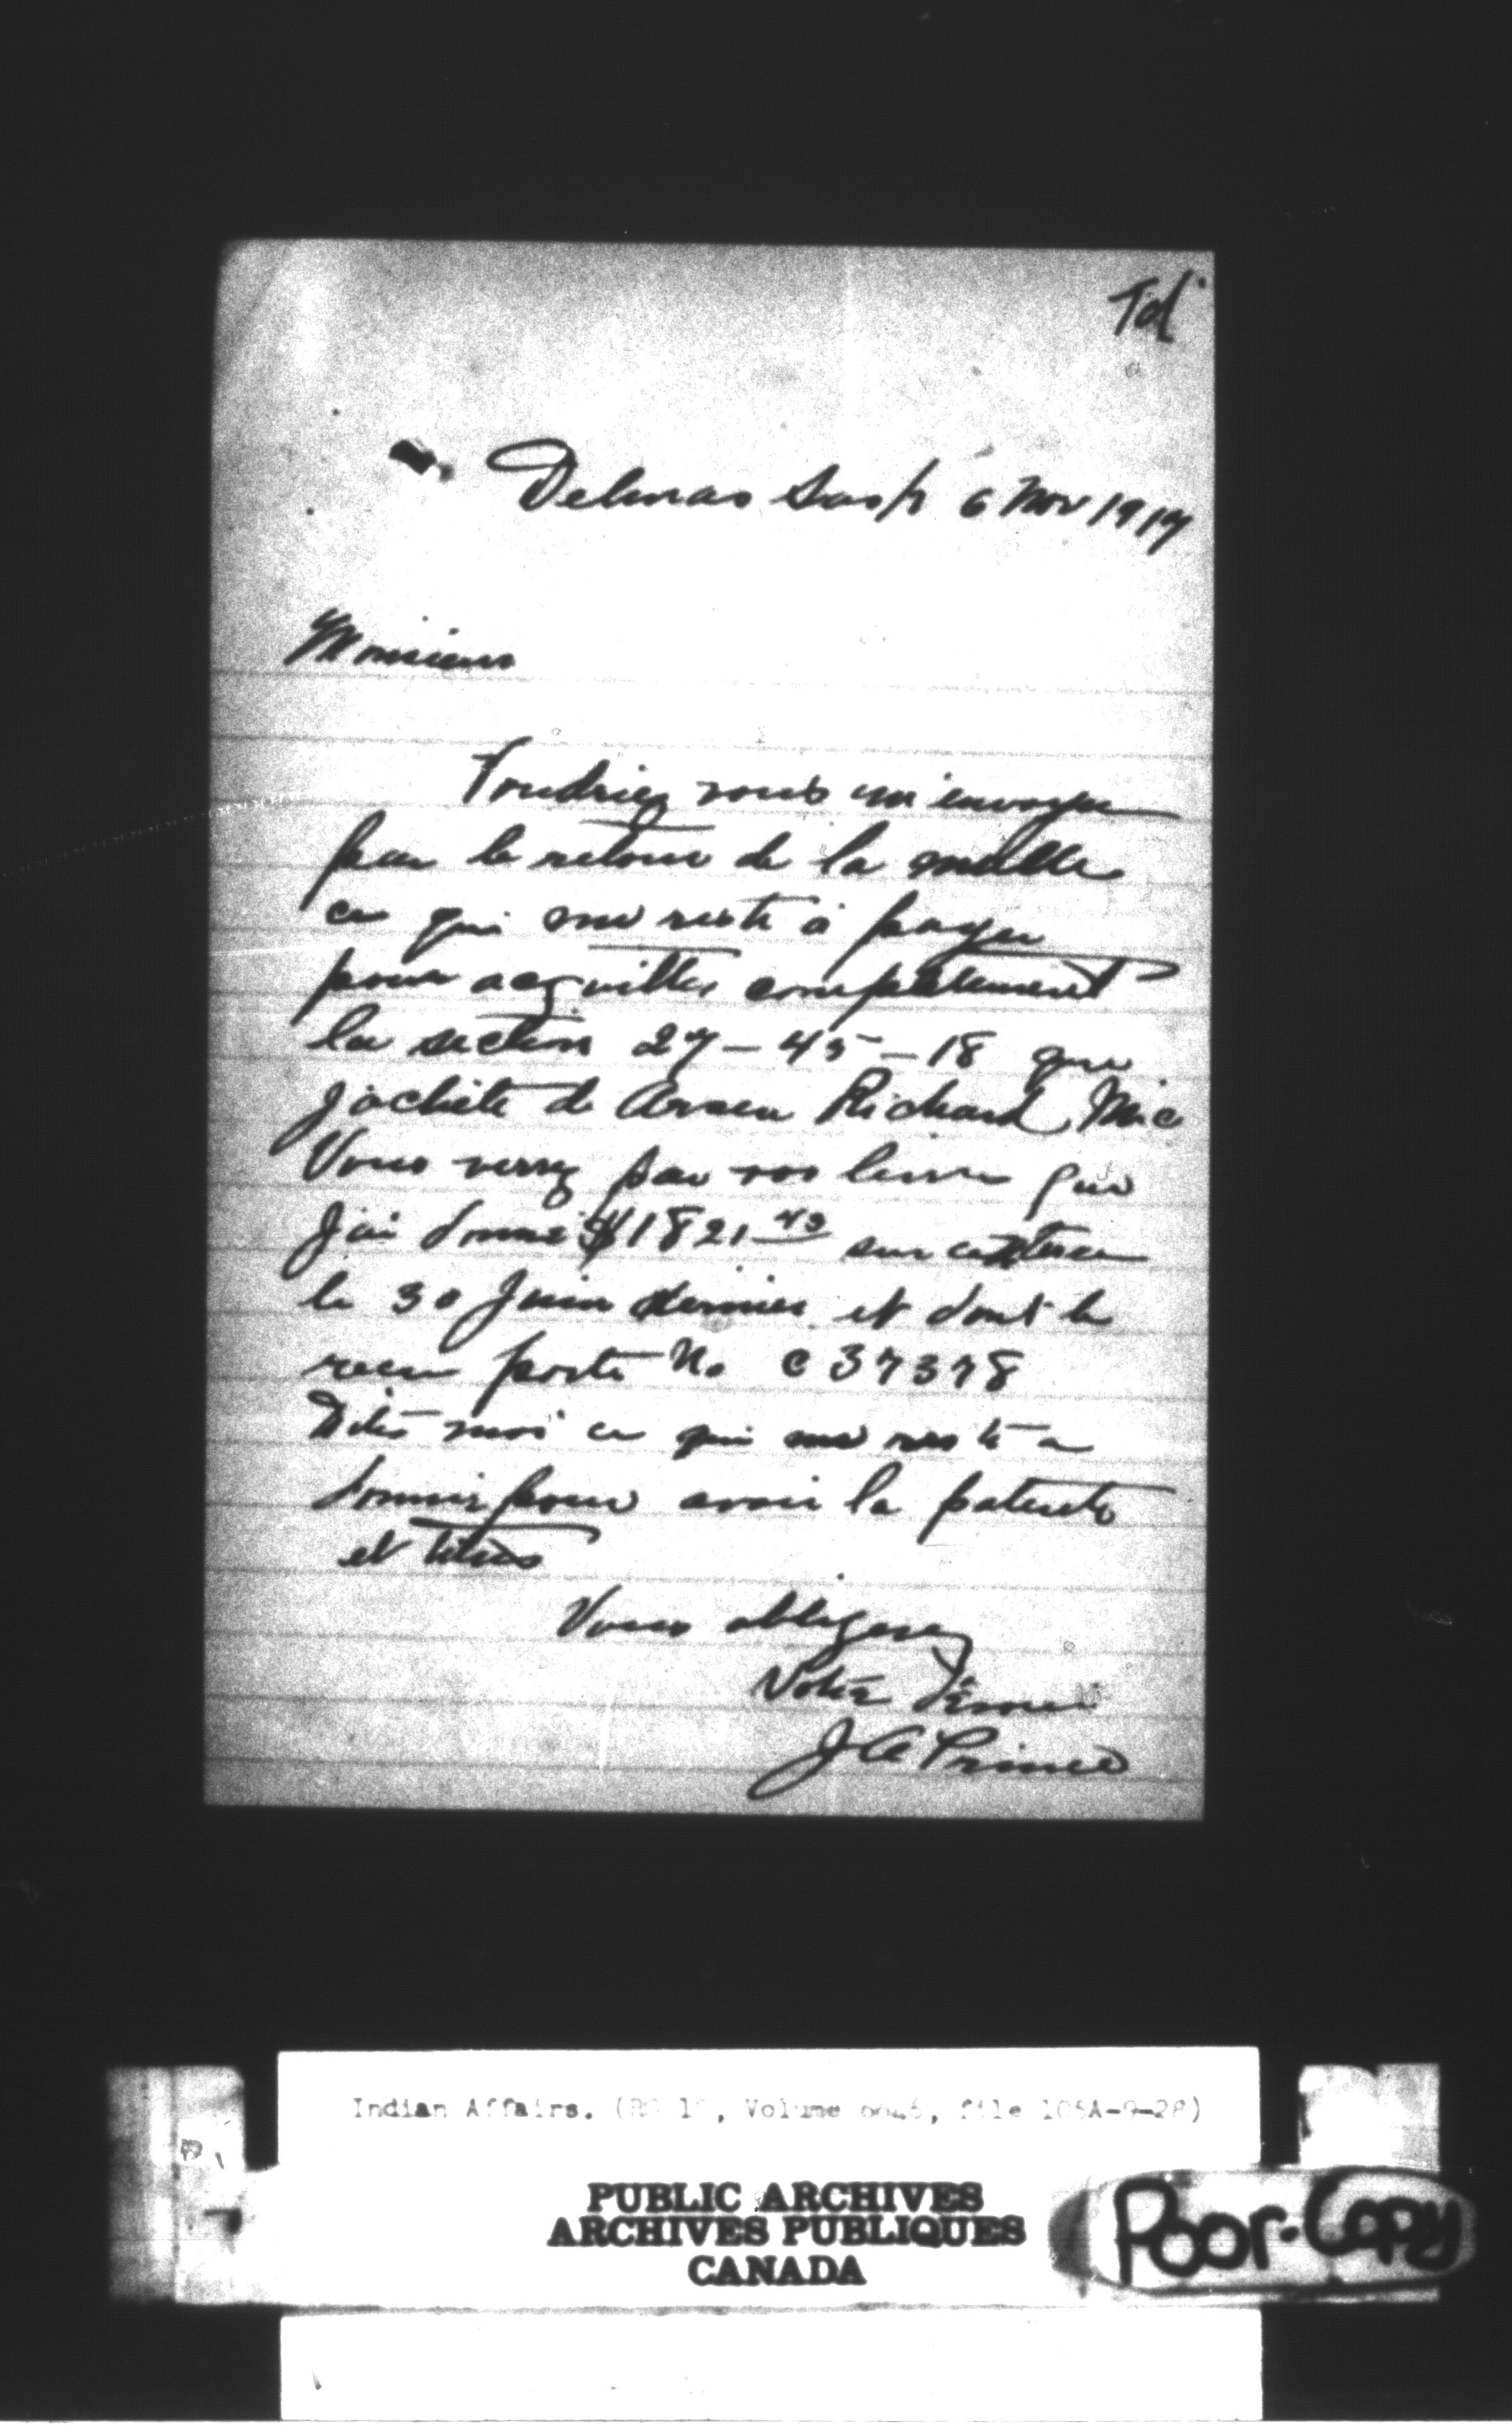 Td
Delmas Sask 6 Nov 1917
Monsieur
Voudriez vous m'envoyer
par le retour de la malle
ce qui me reste à payer
pour acquitter complètement
la section 27-45-18 que
J'achète de Arsen Richard Mic
Vous verrez par vos livres que
J'ai donné $1821 43 sur cette terre
le 30 Juin dernier et dont le
recu porte No C 37378
Dites moi ce qui me reste a
donner pour avoir la patente
et titres
Vous obligerez
Votre Dévoué
J A Prince
Indian Affairs. (RG 10, Volume 6646, file 106A-9-28)
PUBLIC ARCHIVES
ARCHIVES PUBLIQUES
CANADA
Poor-Copy